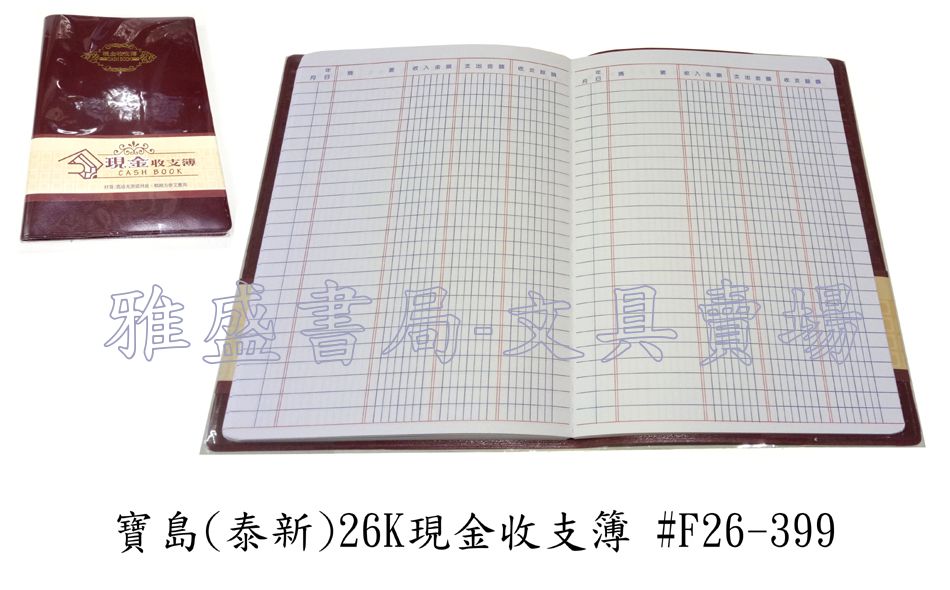 現金收支簿
CASH BOOK
現金收支簿
CASH BOOK
年
月 日
摘 要
收 入 金 額
支 出 金 額
收 支 餘 額
年
月 日
摘 要
收 入 金 額
支 出 金 額
收 支 餘 額
雅盛書局-文具賣場
寶島(泰新)26K現金收支簿 #F26-399